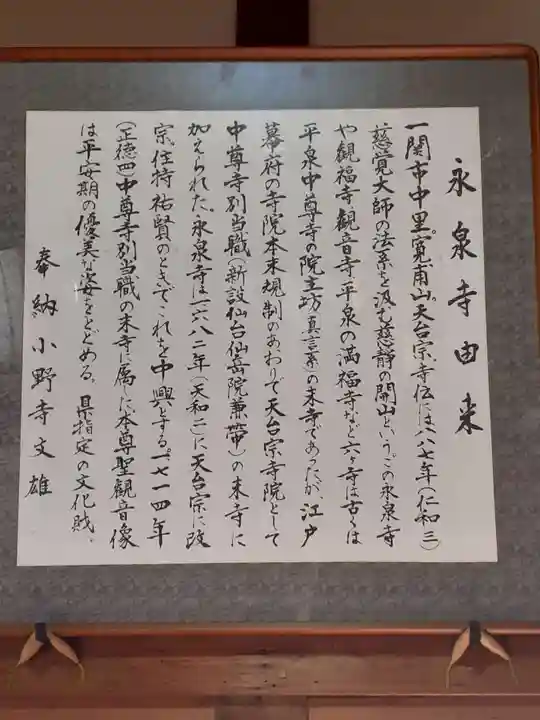 永泉寺由来
一関市中里。寛甫山。天台宗。寺伝には八八七年(仁和三)
慈覚大師の法系を汲む慈静の開山という。この永泉寺
や観福寺観音寺平泉の満福寺など六ヶ寺は古くは
平泉中尊寺の院主坊(真言系)の末寺であったが、江戸
幕府の寺院本末規制のあおりで天台宗寺院として
中尊寺別当職(新設仙台仙岳院兼帯)の末寺に
加えられた。永泉寺は一六八二年(天和二)に天台宗に改
宗、住持祐賢のときでこれを中興とする。一七一四年
(正徳四)中尊寺別当職の末寺に属した。本尊聖観音像
は平安期の優美な姿をとどめる。県指定の文化財。
奉納 小野寺文雄